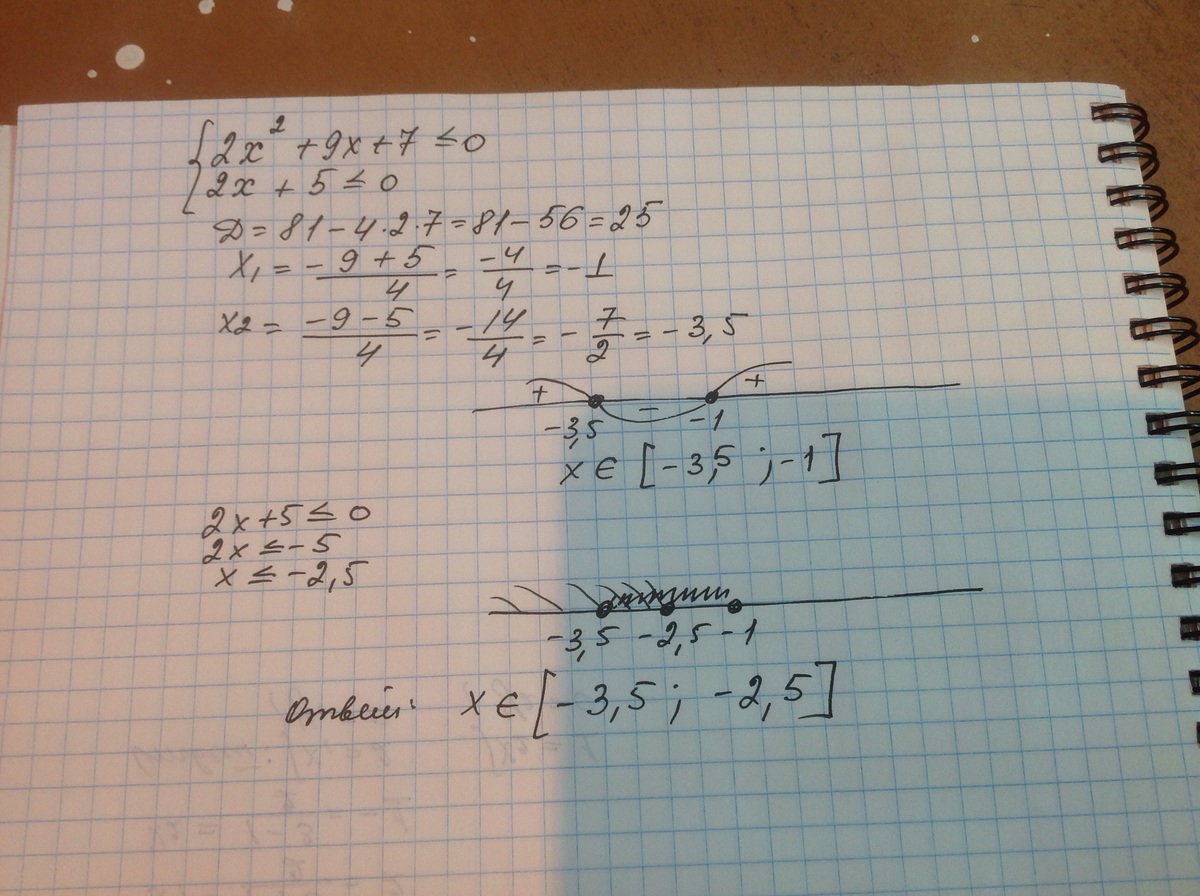 {2x² + 9x + 7 ≤ 0
2x + 5 ≤ 0
D = 81 - 4·2·7 = 81 - 56 = 25
x₁ = (-9 + 5)/4 = -4/4 = -1
x2 = (-9 - 5)/4 = -14/4 = -7/2 = -3,5
+ - +
-3,5 -1
x ∈ [-3,5 ; -1]
2x + 5 ≤ 0
2x ≤ -5
x ≤ -2,5
-3,5 -2,5 -1
Ответ: x ∈ [-3,5 ; -2,5]